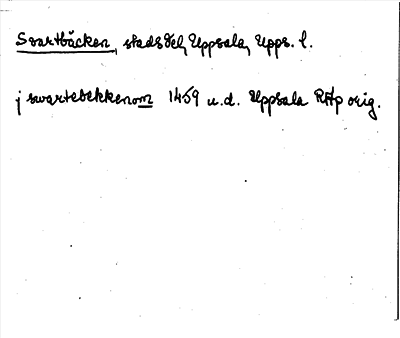 Svartbäcken, stadsdel, Uppsala, Upps. l.
j swartebekkenom 1459 u.d. Uppsala RAp orig.